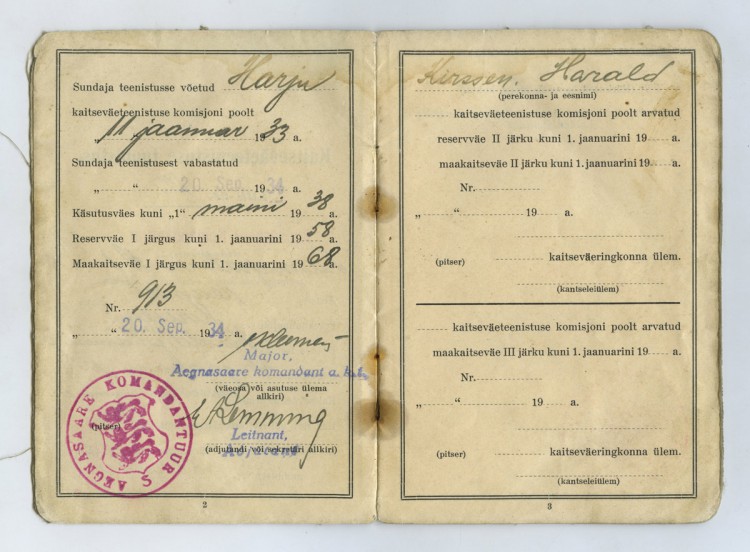 Sundaja teenistusse võetud Harju
kaitseväeteenistuse komisjoni poolt
„ 11 jaanuar 1933 a.
Sundaja teenistusest vabastatud
„ “ 20. Sep. 1934 a.
Käsutusväes kuni „1“ maini 1938 a.
Reservväe I järgus kuni 1. jaanuarini 1958 a.
Maakaitseväe I järgus kuni 1. jaanuarini 1968 a.
Nr. 913
„ “ 20. Sep. 1934 a.
Major,
Aegnasaare komandant a. k. t.
(väeosa) või asutuse ülema
allkiri)
Lemming
Leitnant,
Adjutant
(adjutandi või sekretäri allkiri)
(pitser)
AEGNASAARE KOMANDANTUUR
2
Kerssen. Harald
(perekonna- ja eesnimi)
kaitseväeteenistuse komisjoni poolt arvatud
reservväe II järku kuni 1. jaanuarini 19 a.
maakaitseväe II järku kuni 1. jaanuarini 19 a.
Nr.
„ “ 19 a.
(pitser) kaitseväeringkonna ülem.
(kantseleiülem)
kaitseväeteenistuse komisjoni poolt arvatud
maakaitseväe III järku kuni 1. jaanuarini 19 a.
Nr.
„ “ 19 a.
(pitser) kaitseväeringkonna ülem.
(kantseleiülem)
3